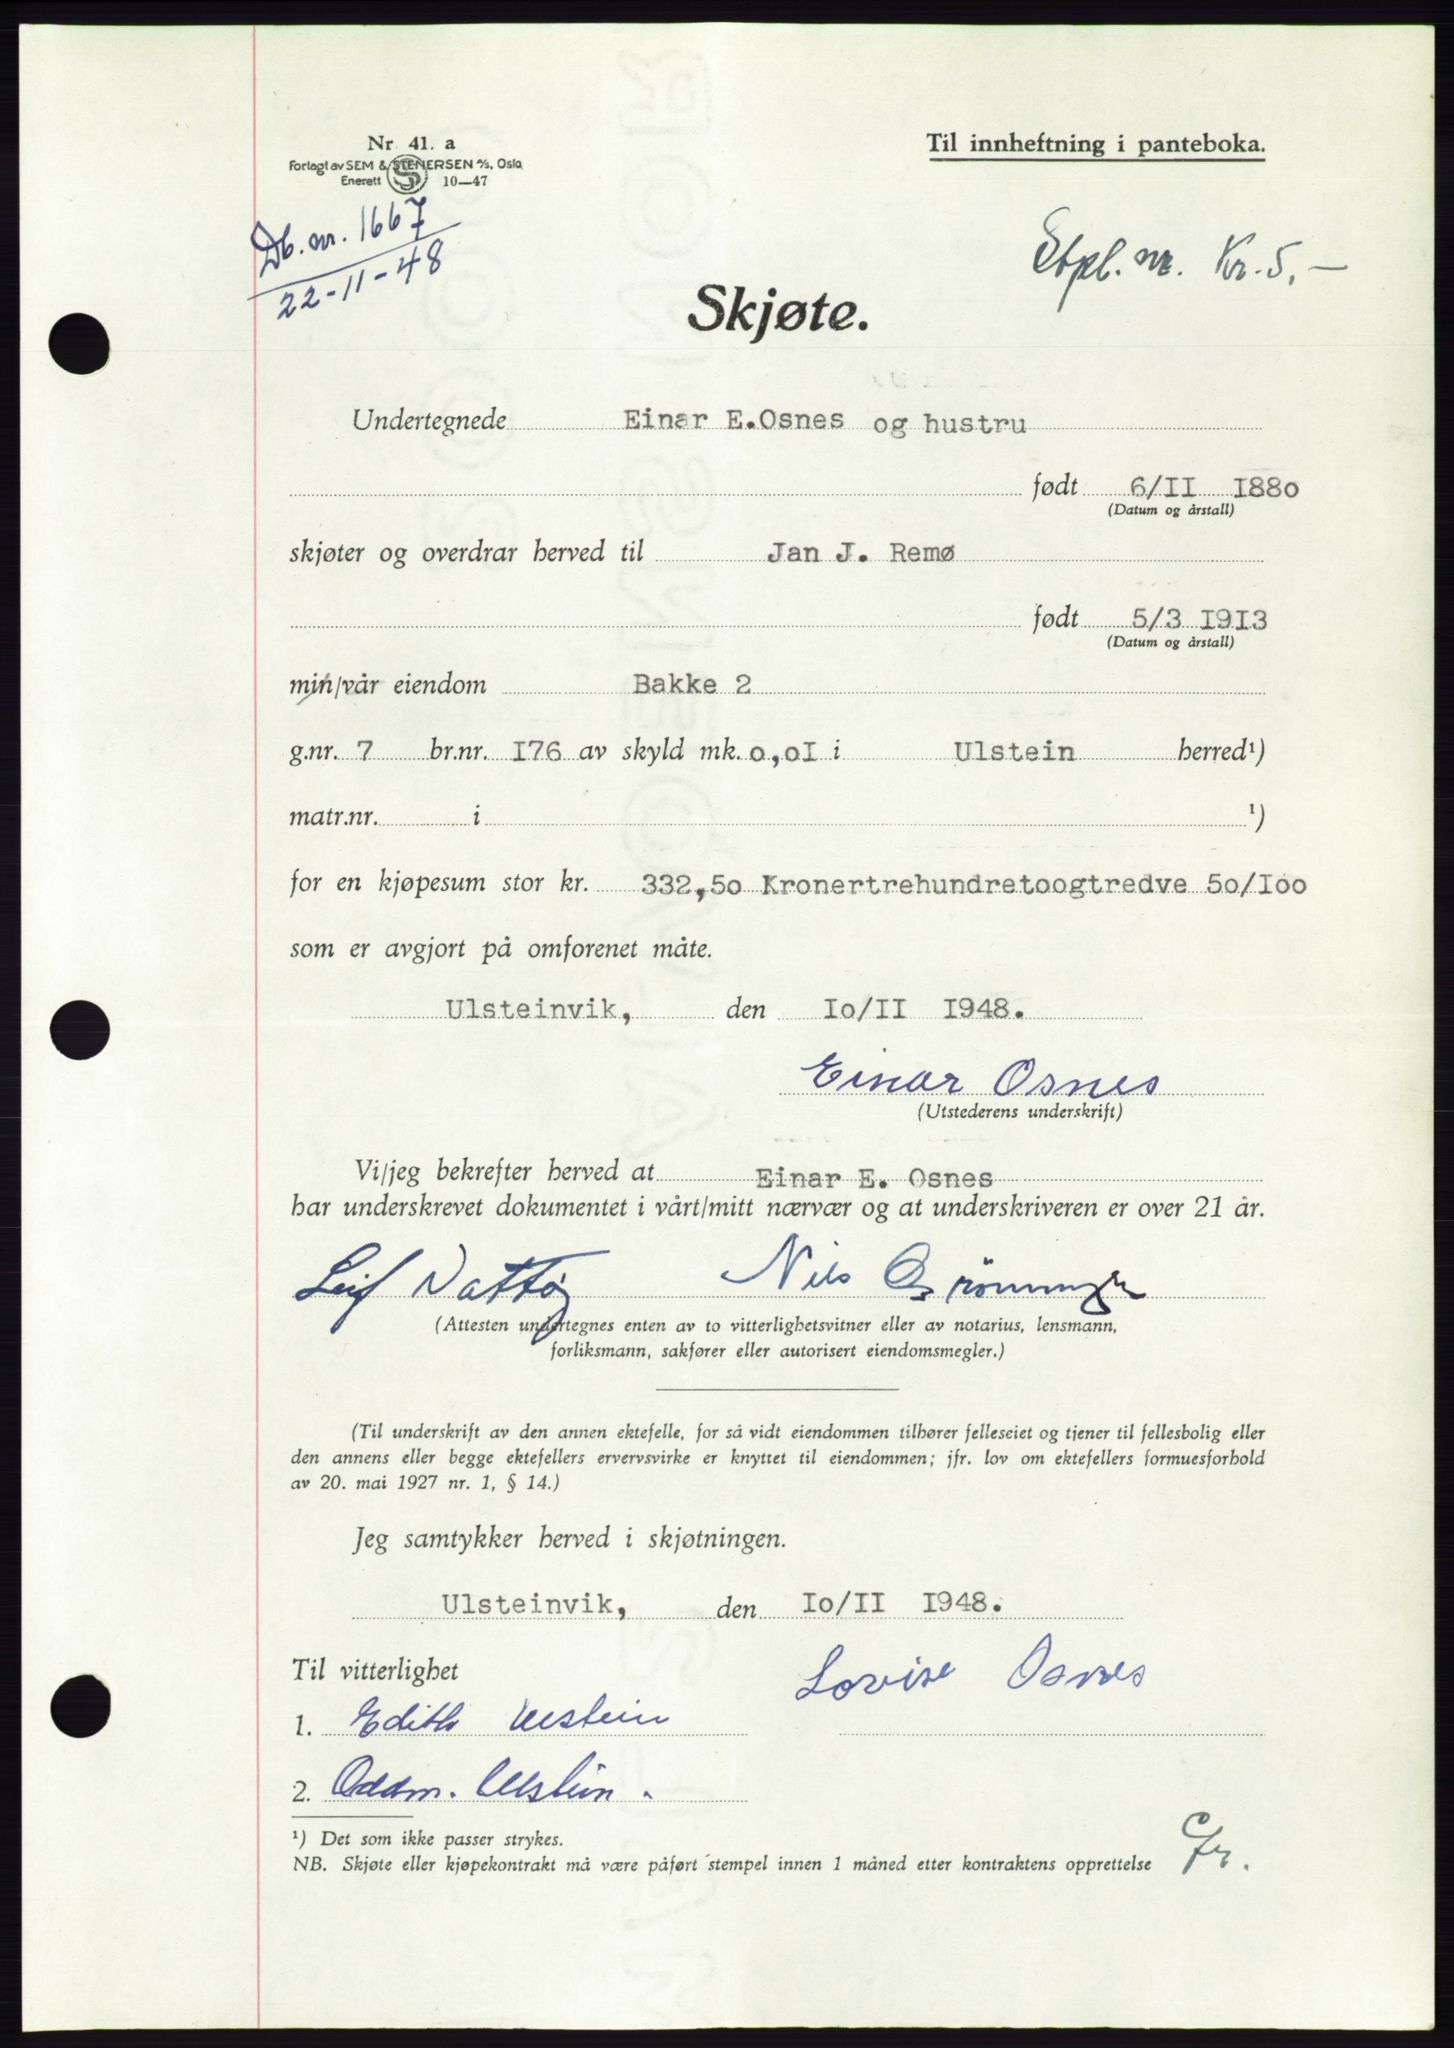 Nr. 41. a
Forlagt av SEM & STENERSEN A/S, Oslo
Enerett 10—47
Til innheftning i panteboka.
Db. nr. 1667
22-11-48
Stpl. nr. Kr. 5.—
Skjøte.
Undertegnede Einar E.Osnes og hustru
født 6/II 1880
(Datum og årstall)
skjøter og overdrar herved til Jan J. Remø
født 5/3 I9I3
(Datum og årstall)
min/vår eiendom Bakke 2
g.nr. 7 br.nr. I76 av skyld mk. o,oI i Ulstein herred¹)
matr.nr. i ¹)
for en kjøpesum stor kr. 332,5o Kronertrehundretoogtredve 5o/Ioo
som er avgjort på omforenet måte.
Ulsteinvik, den Io/II I948.
Einar Osnes
(Utstederens underskrift)
Vi/jeg bekrefter herved at Einar E. Osnes
har underskrevet dokumentet i vårt/mitt nærvær og at underskriveren er over 21 år.
Leif Nattøy Nils Grönningen
(Attesten undertegnes enten av to vitterlighetsvitner eller av notarius, lensmann,
forliksmann, sakfører eller autorisert eiendomsmegler.)
(Til underskrift av den annen ektefelle, for så vidt eiendommen tilhører felleseiet og tjener til fellesbolig eller
den annens eller begge ektefellers ervervsvirke er knyttet til eiendommen; jfr. lov om ektefellers formuesforhold
av 20. mai 1927 nr. 1, § 14.)
Jeg samtykker herved i skjøtningen.
Ulsteinvik, den Io/II I948.
Til vitterlighet
Lovise Osnes
1. Edith Ulstein
2. Oddm. Ulstein.
¹) Det som ikke passer strykes.
NB. Skjøte eller kjøpekontrakt må være påført stempel innen 1 måned etter kontraktens opprettelse